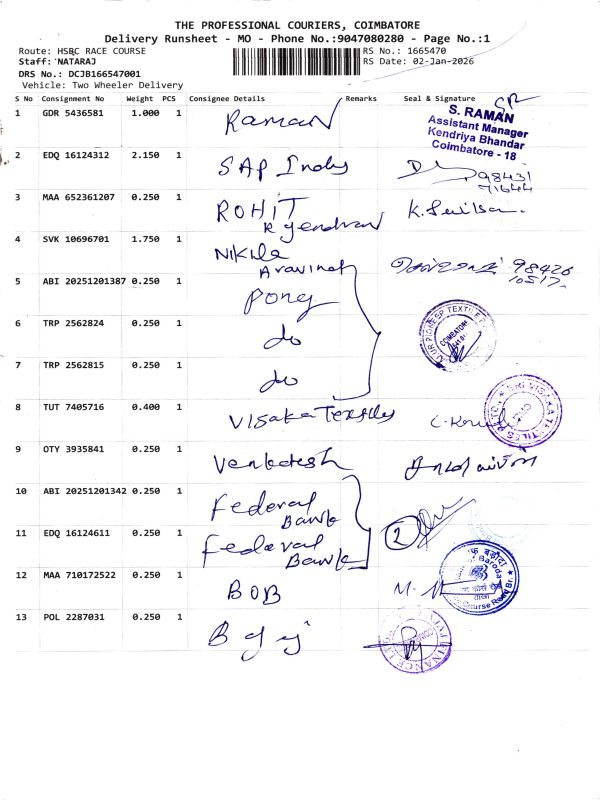 THE PROFESSIONAL COURIERS, COIMBATORE
Delivery Runsheet - MO - Phone No.:9047080280 - Page No.:1
Route: HSBC RACE COURSE
RS No.: 1665470
Staff: NATARAJ
RS Date: 02-Jan-2026
DRS No.: DCJB166547001
Vehicle: Two Wheeler Delivery
S No Consignment No Weight PCS Consignee Details Remarks Seal & Signature
1 GDR 5436581 1.000 1 Raman
S. RAMAN
Assistant Manager
Kendriya Bhandar
Coimbatore - 18
2 EDQ 16124312 2.150 1 SAP Indus
98431
71644
3 MAA 652361207 0.250 1 ROHIT
4 SVK 10696701 1.750 1 Nikila
Aravinth
98426
10517
5 ABI 20251201387 0.250 1 Pong
6 TRP 2562824 0.250 1 do
COIMBATORE
7 TRP 2562815 0.250 1 do
8 TUT 7405716 0.400 1 Visaka Textiles
SRI VISAKA TEXTILES
9 OTY 3935841 0.250 1 Venkatesh
10 ABI 20251201342 0.250 1 Federal
Bank
2
11 EDQ 16124611 0.250 1 Federal
Bank
12 MAA 710172522 0.250 1 BOB
of Baroda
Course Road Br.
13 POL 2287031 0.250 1 Bajaj
FINANCE